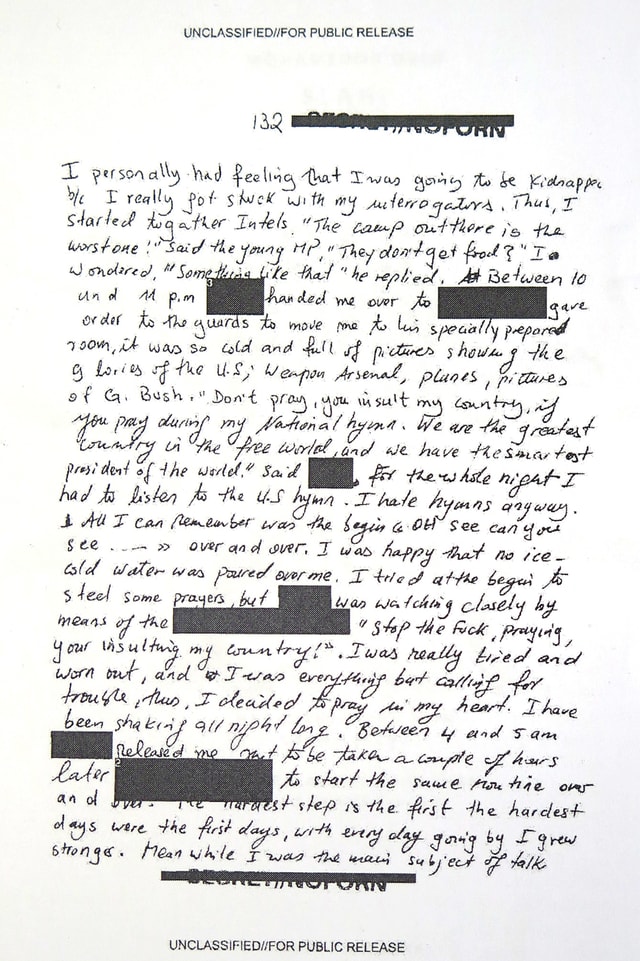 UNCLASSIFIED//FOR PUBLIC RELEASE
132 SECRET//NOFORN
I personally had feeling that I was going to be kidnapped
b/c I really got stuck with my interrogators. Thus, I
started to gather Intels. "The camp out there is the
worst one!" Said the young MP, "They don't get food?" I
wondered, "Something like that" he replied. Between 10
and 11 p.m handed me over to gave
order to the guards to move me to his specially prepared
room, it was so cold and full of pictures showing the
glories of the U.S; Weapon Arsenal, planes, pictures
of G. Bush. "Don't pray, you insult my country, if
you pray during my National hymn. We are the greatest
country in the free world, and we have the smartest
president of the world." Said , for the whole night I
had to listen to the U.S hymn. I hate hymns anyway.
All I can Remember was the begin « Oh see can you
see .... » over and over. I was happy that no ice-
cold water was poured over me. I tried at the begin to
steel some prayers, but was watching closely by
means of the "Stop the fuck, praying,
your insulting my country!". I was really tired and
worn out, and I was everything but calling for
trouble, thus, I decided to pray in my heart. I have
been shaking all night long. Between 4 and 5 am
Released me to be taken a couple of hours
later to start the same routine over
and over. The hardest step is the first the hardest
days were the first days, with every day going by I grew
stronger. Mean while I was the main subject of talk
SECRET//NOFORN
UNCLASSIFIED//FOR PUBLIC RELEASE